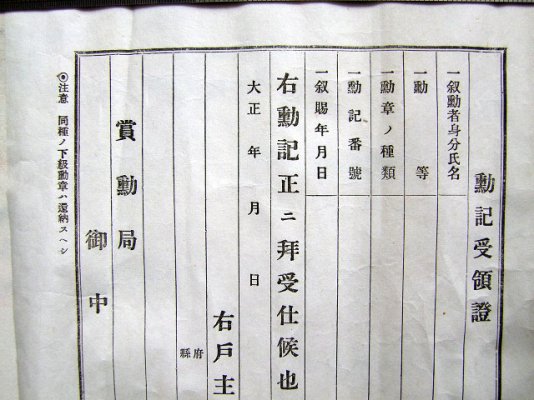 勳記受領證
一叙勳者身分氏名
一勳等
一勳章ノ種類
一勳記番號
一叙賜年月日
右勳記正ニ拜受仕候也
大正 年 月 日
府
縣
右戸主
賞勳局
御中
◉注意 同種ノ下級勳章ハ還納スヘシ